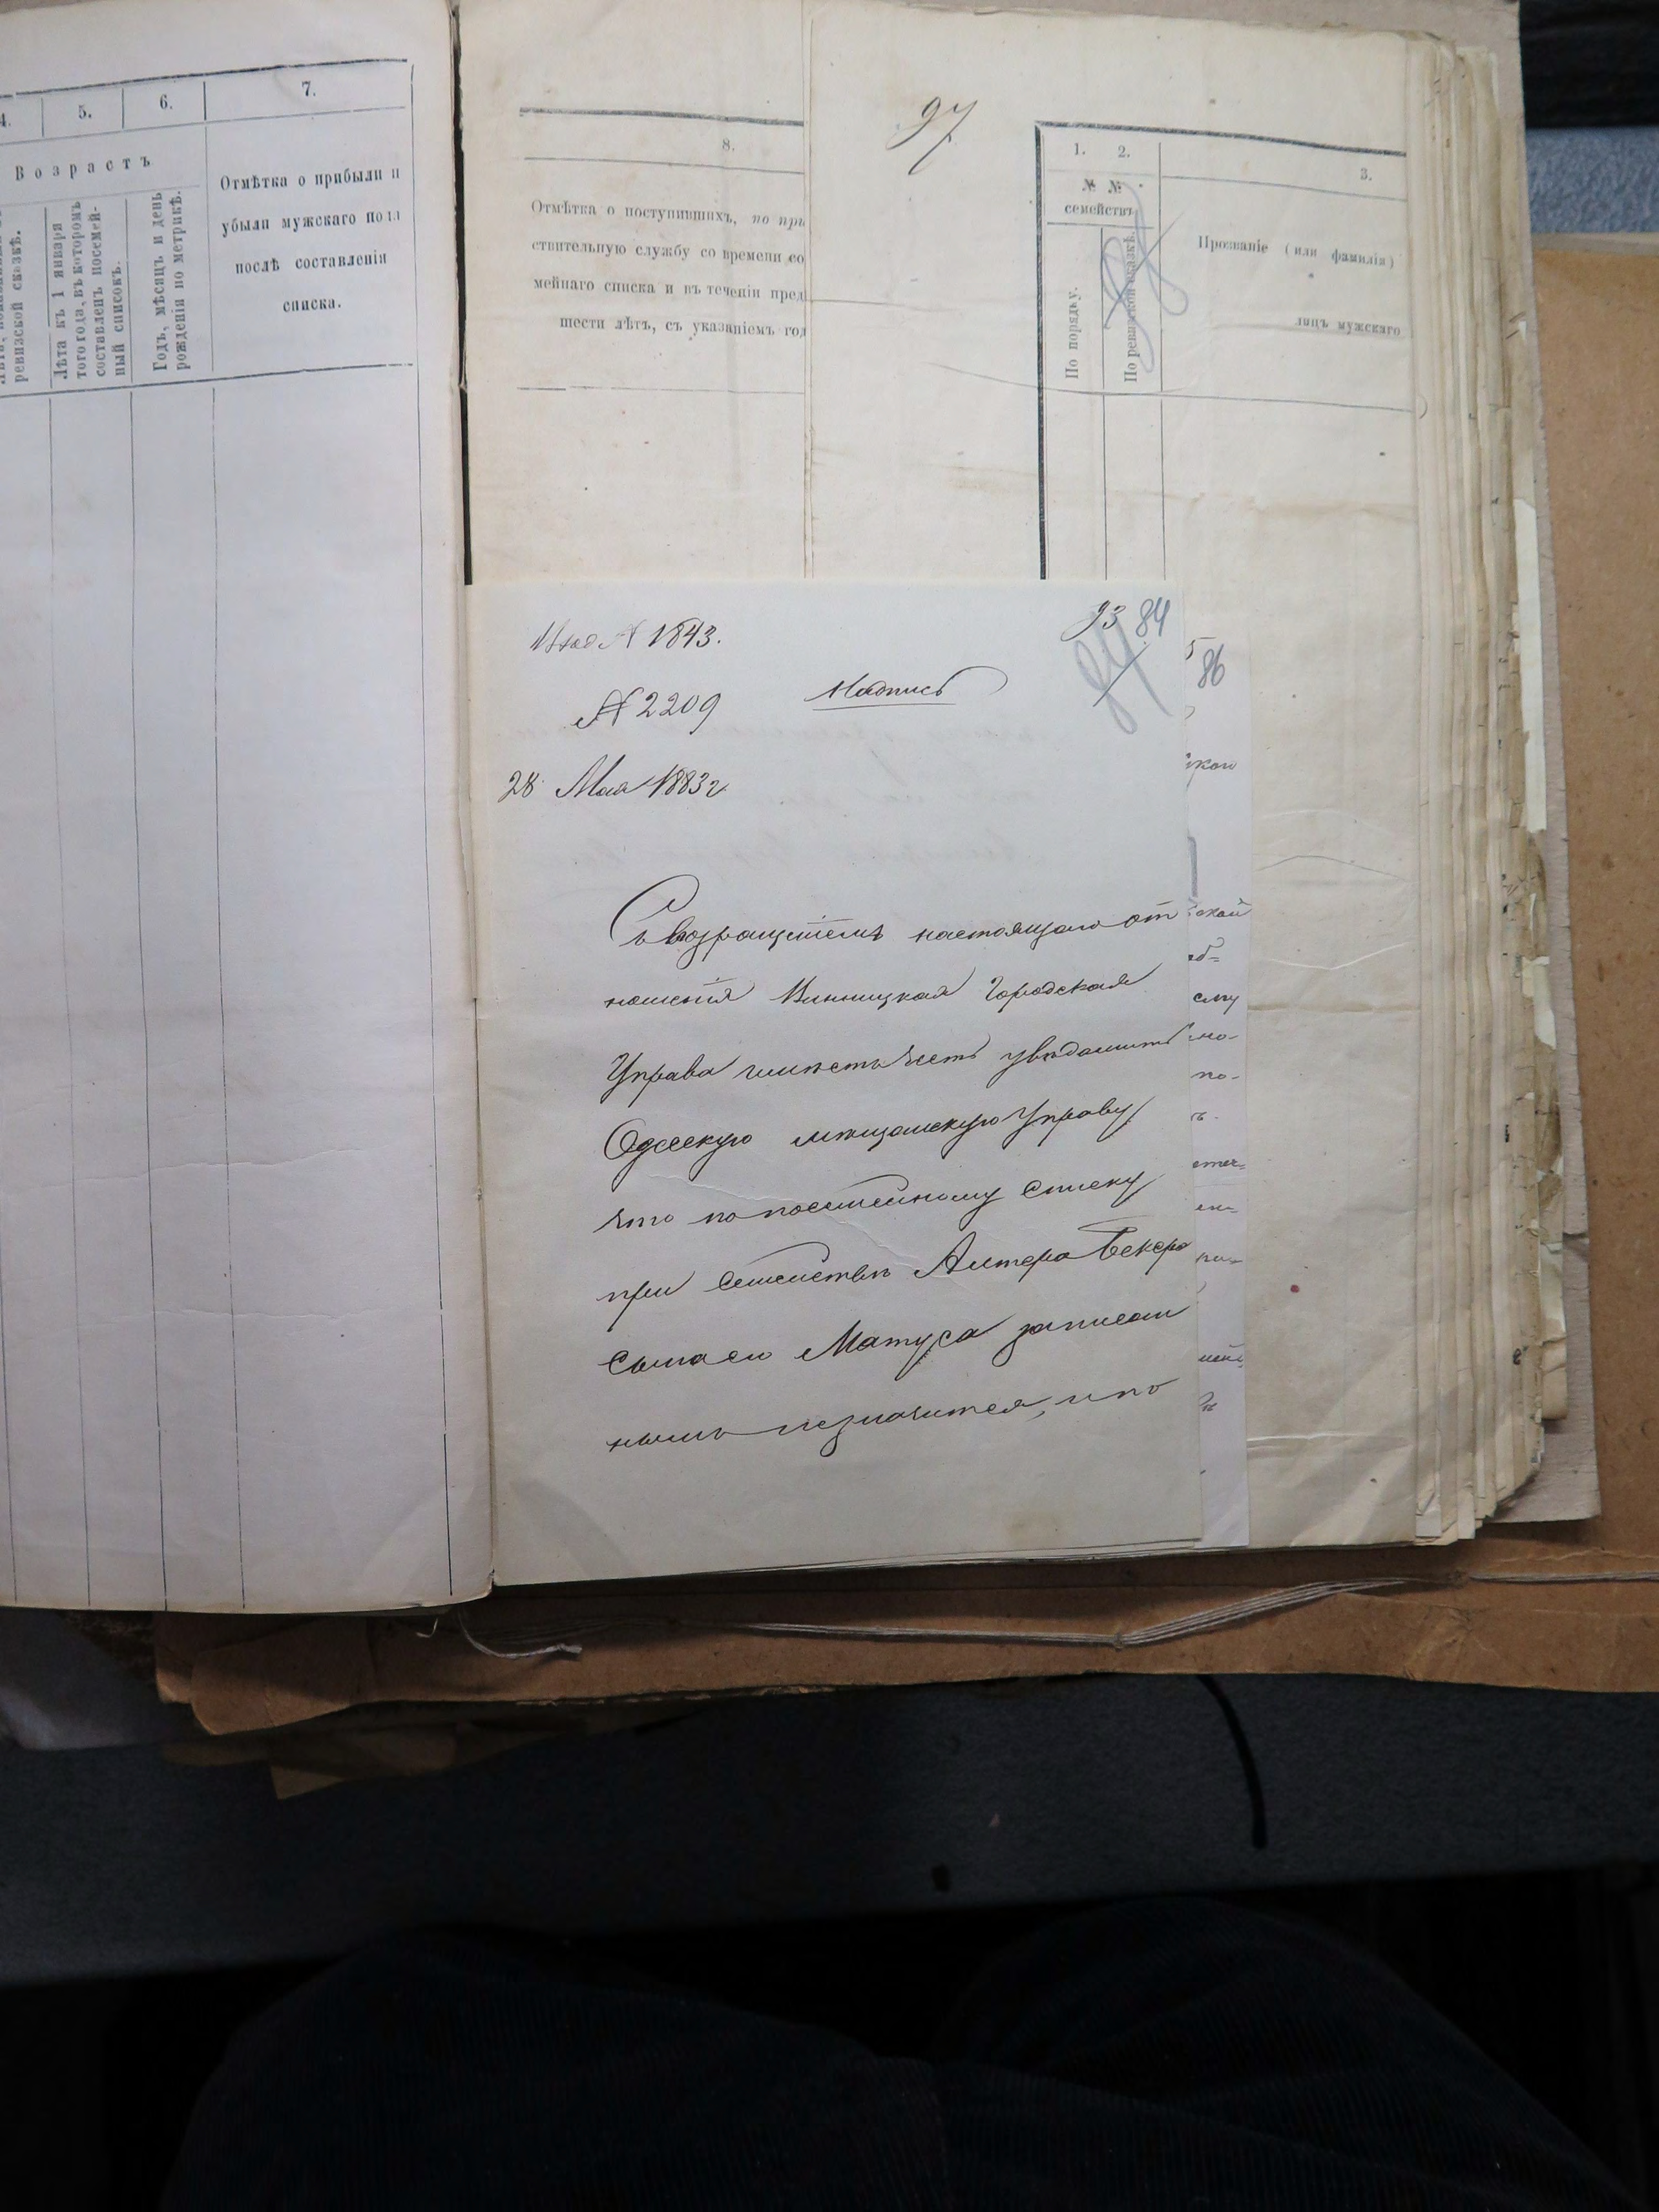 4.
5.
6.
7.
Возрастъ
ревизской сказкѣ.
Лѣта къ 1 января
того года, въ которомъ
составленъ посемей-
ный списокъ.
Годъ, мѣсяцъ и день
рожденія по метрикѣ.
Отмѣтка о прибыли и
убыли мужскаго пола
послѣ составленія
списка.
8.
Отмѣтка о поступившихъ, по
ствительную службу со времени со
мейнаго списка и въ теченіи пред
шести лѣтъ, съ указаніемъ год
97
1. 2.
3.
№ №
семействъ
По порядку.
По ревизской сказкѣ.
Прозваніе (или фамилія)
лицъ мужскаго
№ 1843.
93 84
84
№ 2209
Надпись
28 Мая 1883 г
Съ возращеніемъ настоящаго от
ношенія Винницкая Городская
Управа имѣетъ честь увѣдомить
Одесскую мѣщанскую Управу
что по посемейному списку
при Семействѣ Алтера Бекера
сына его Матуса записан
нымъ незначится, и по
86
ской
ему
но-
по-